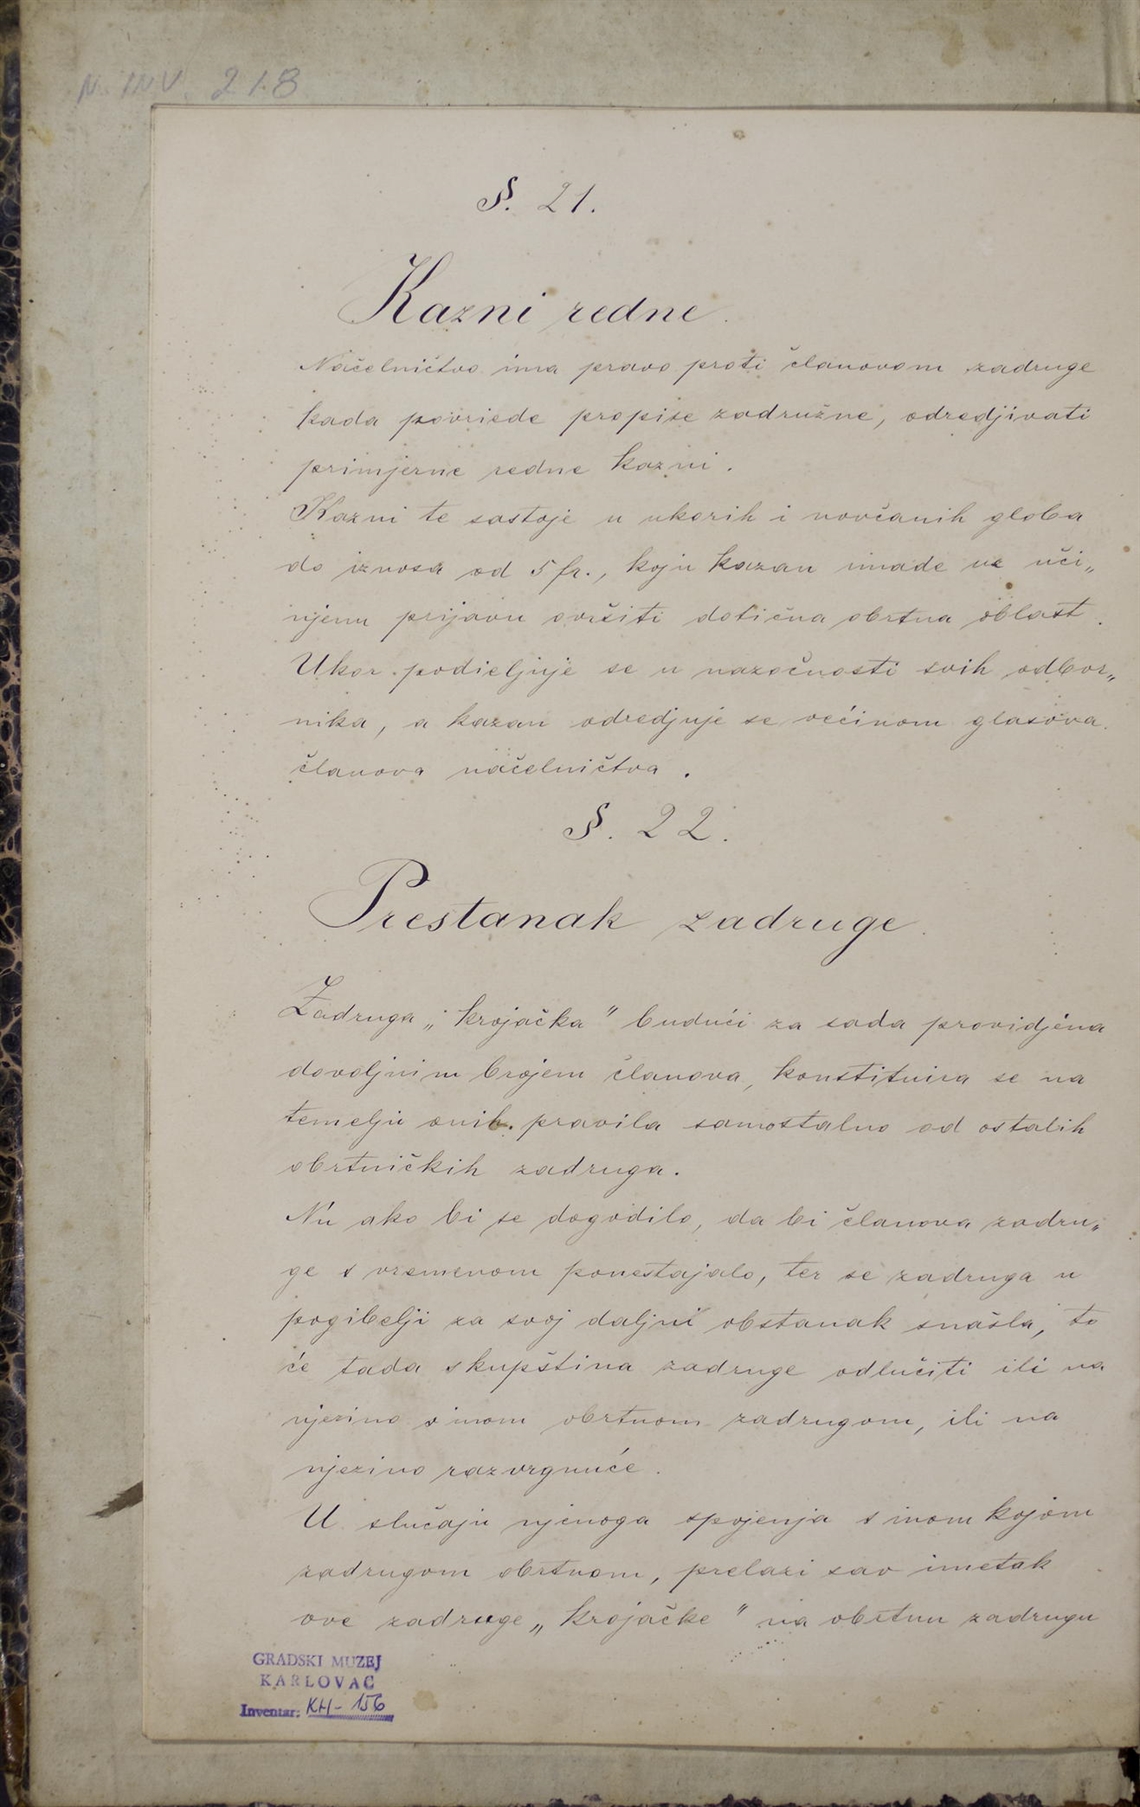 N. INV. 218
§. 21.
Kazni redne.
Načelničtvo ima pravo proti članovom zadruge
kada povriede propise zadružne, odredjivati
primjerne redne kazni.
Kazni te sastoje u ukorih i novčanih globa
do iznosa od 5 fr., koju kazan imade uz uči„
njenu prijavu ovršiti dotična obrtna oblast.
Ukor podieljuje se u nazočnosti svih odbor„
nika, a kazan odredjuje se većinom glasova
članova načelničtva.
§. 22.
Prestanak zadruge.
Zadruga „krojačka" budući za sada providjena
dovoljnim brojem članova, konstituira se na
temelju ovih pravila samostalno od ostalih
obrtničkih zadruga.
Nu ako bi se dogodilo, da bi članova zadru„
ge s vremenom ponestajalo, ter se zadruga u
pogibelji za svoj daljni obstanak snašla, to
će tada skupština zadruge odlučiti ili na
njezino s inom obrtnom zadrugom, ili na
njezino razvrgnuće.
U slučaju njenoga spojenja s inom kojom
zadrugom obrtnom, prelazi sav imetak
ove zadruge „krojačke" na obrtnu zadrugu
GRADSKI MUZEJ
KARLOVAC
Inventar: KH-156